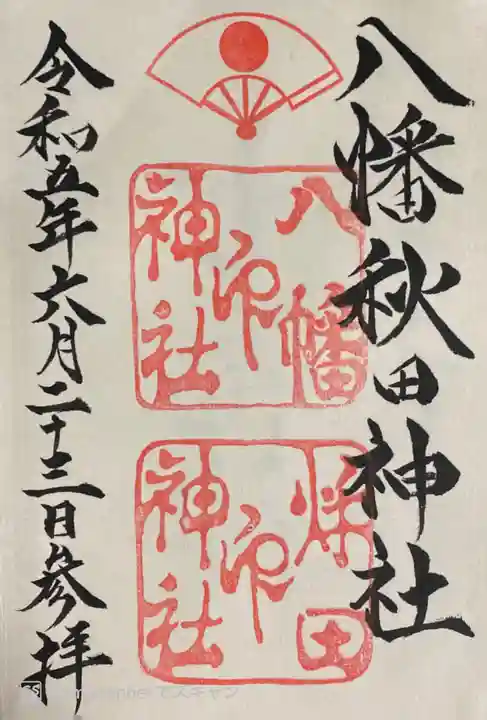 八幡秋田神社
八幡
神社
印
秋田
神社
印
令和五年六月二十三日参拝
CS CamScanner でスキャン